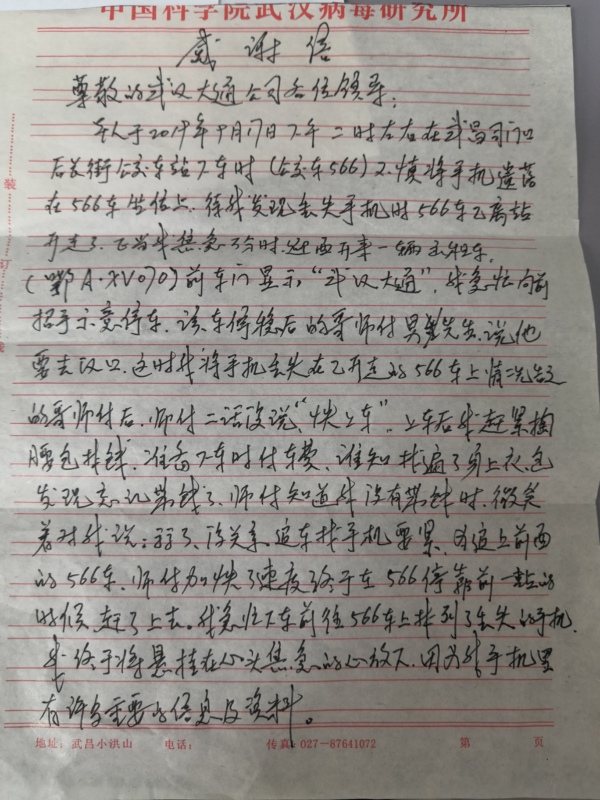 中国科学院武汉病毒研究所
感谢信
尊敬的武汉大通公司各位领导:
本人于2019年9月17日下午二时左右在武昌司门口
后长街公交车站下车时(公交车566)不慎将手机遗落
在566车坐位上,待我发现丢失手机时566车已离站
开走了。正当我焦急万分时,迎面开来一辆出租车,
(鄂A·XV070)前车门显示“武汉大通”,我急忙向前
招手示意停车。该车停稳后的哥师付吴先生,说他
要去汉口,这时我将手机丢失在已开走的566车上情况告之
的哥师付后,师付二话没说,“快上车”。上车后我赶紧掏
腰包找钱,准备下车时付车费,谁知找遍了身上衣包
发现忘记带钱了,师付知道我没有带钱时,微笑
着对我说:算了,没关系,追车找手机要紧,为追上前面
的566车,师付加快了速度终于在566停靠前一站的
时候,赶了上去。我急忙下车前往566车上找到了丢失的手机,
我终于将悬挂在心头焦急的心放下,因为我手机里
有许多重要的信息及资料。
装
订
地址:武昌小洪山 电话: 传真:027-87641072 第 页